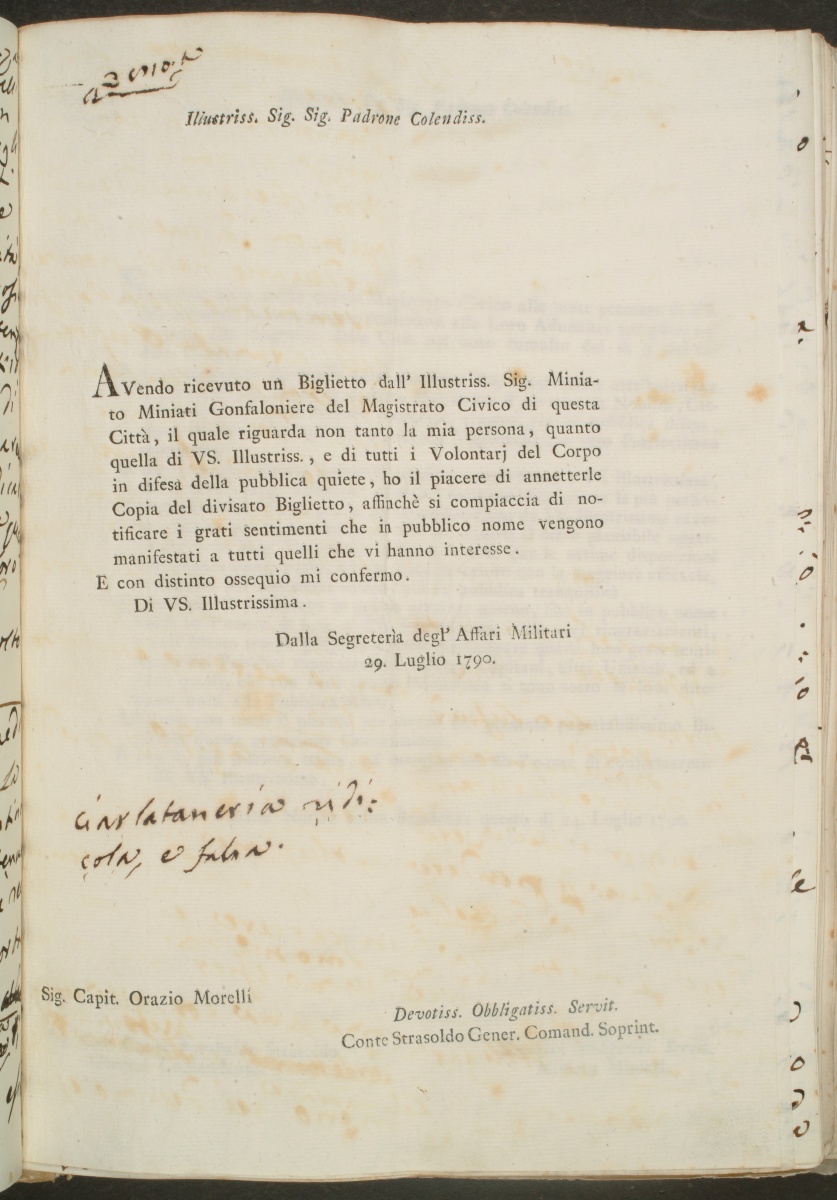 Illustriss. Sig. Sig. Padrone Colendiss.
AVendo ricevuto un Biglietto dall' Illustriss. Sig. Minia-
to Miniati Gonfaloniere del Magistrato Civico di questa
Città, il quale riguarda non tanto la mia persona, quanto
quella di VS. Illustriss., e di tutti i Volontarj del Corpo
in difesa della pubblica quiete, ho il piacere di annetterle
Copia del divisato Biglietto, affinchè si compiaccia di no-
tificare i grati sentimenti che in pubblico nome vengono
manifestati a tutti quelli che vi hanno interesse.
E con distinto ossequio mi confermo.
Di VS. Illustrissima.
Dalla Segreterìa degl' Affari Militari
29. Luglio 1790.
ciarlataneria ridi:
cola, e falsa.
Sig. Capit. Orazio Morelli
Devotiss. Obbligatiss. Servit.
Conte Strasoldo Gener. Comand. Soprint.